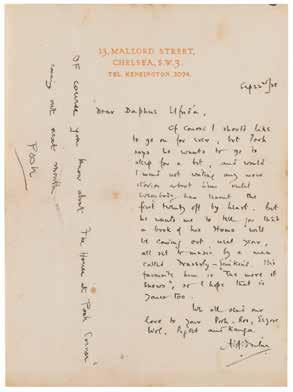 13, MALLORD STREET,
CHELSEA, S.W.3.
TEL. KENSINGTON 2074.
Dear Daphne
Of course I should like
to go on for ever, but Pooh
says he wants to go to
sleep for a bit, and would
I mind not writing any more
stories about him until
everybody has learnt the
first twenty off by heart. But
he wants me to tell you that
a book of his Hums will
be coming out next year,
all set to music by a man
called Fraser-Simson. His
favourite hum is "The more it
snows", so I hope that is
yours too.
We all send our
love to your Pooh, Roo, Eeyore
Wol, Piglet and Kanga.
A. A. Milne
Of course you know about The House at Pooh Corner
coming out next month
Pooh